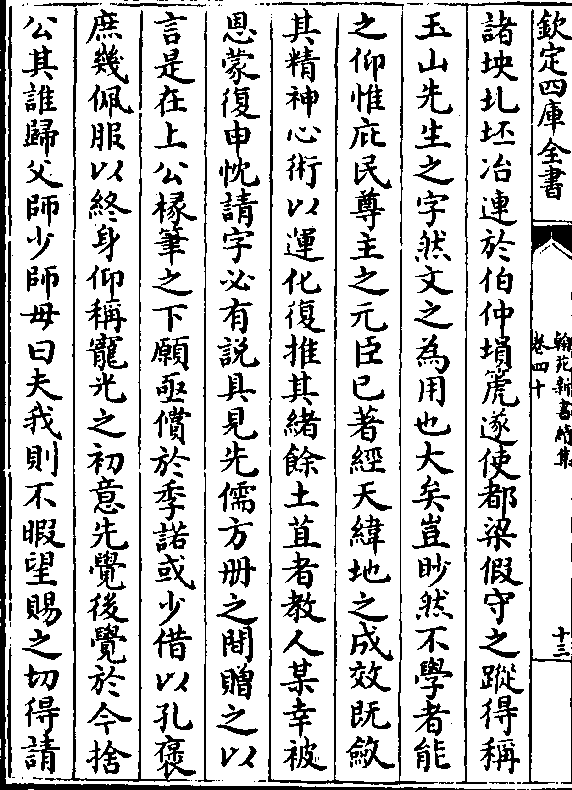 欽定四庫全書
翰苑新書續集
卷四十
十三
諸坱圠坯冶連於伯仲塤箎遂使都梁假守之蹤得稱
玉山先生之字然文之為用也大矣豈眇然不學者能
之仰惟庇民尊主之元臣已著經天緯地之成效既斂
其精神心術以運化復推其緒餘土苴者教人某幸被
恩蒙復申忱請字必有説具見先儒方册之間贈之以
言是在上公椽筆之下願亟償於季諾或少借以孔褒
庶幾佩服以終身仰稱寵光之初意先覺後覺於今捨
公其誰歸父師少師毋曰夫我則不暇望賜之切得請